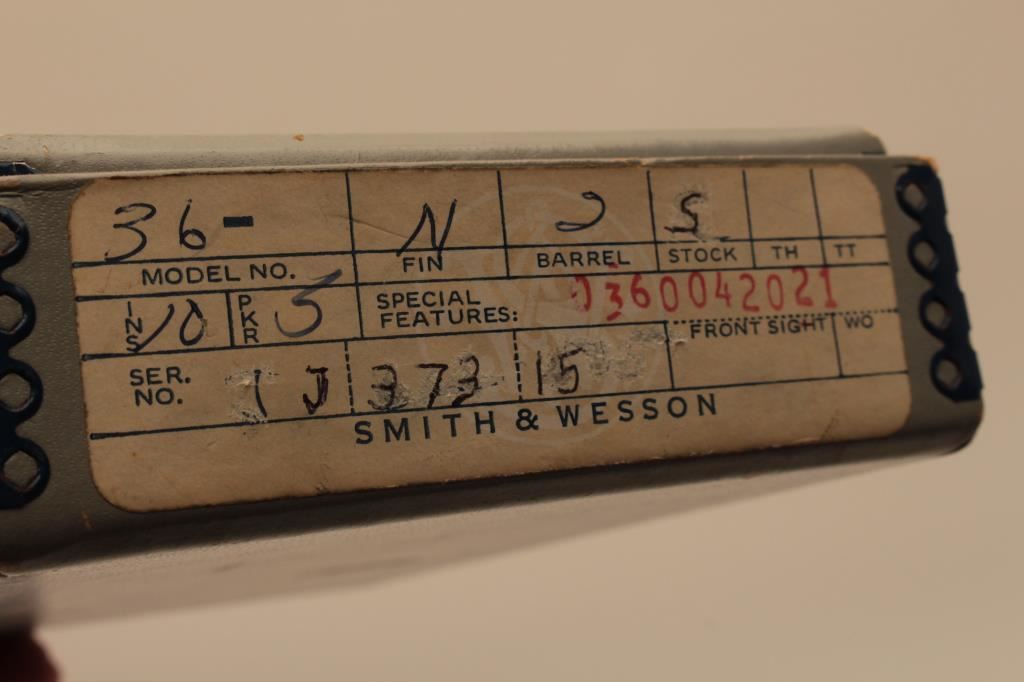 36- N 2 S
MODEL NO. FIN BARREL STOCK TH TT
INS 10 PKR 5 SPECIAL FEATURES: 0360042021
FRONT SIGHT WO
SER. NO. 1 J 373 15
SMITH & WESSON